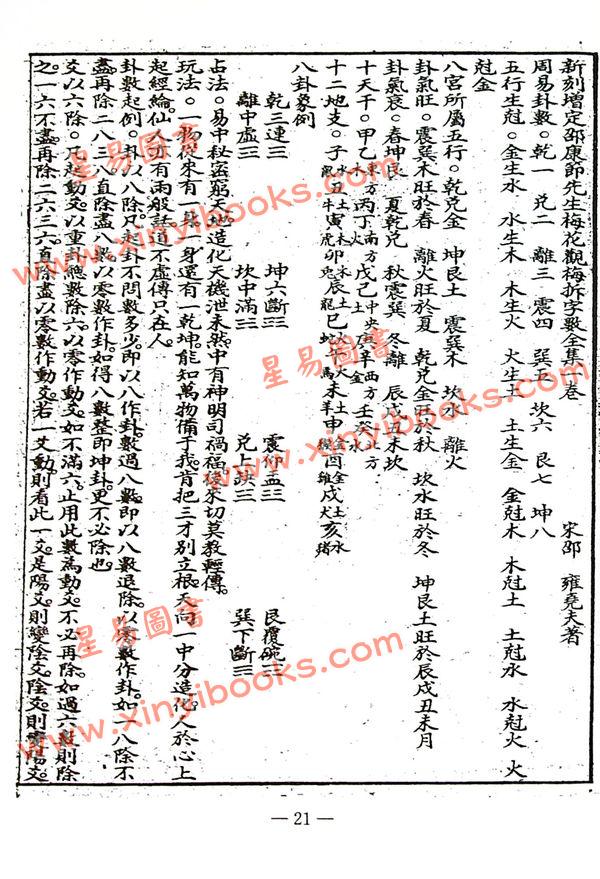 新刻增定邵康節先生梅花觀梅拆字數全集 卷 宋邵 雍堯夫著
周易卦數。乾一 兌二 離三 震四 巽五 坎六 艮七 坤八
五行生尅。金生水 水生木 木生火 火生土 土生金 金尅木 木尅土 土尅水 水尅火 火
尅金
八宮所屬五行。乾兌金 坤艮土 震巽木 坎水 離火
卦氣旺。震巽木旺於春 離火旺於夏 乾兌金旺於秋 坎水旺於冬 坤艮土旺於辰戌丑未月
卦氣衰。春坤艮 夏乾兌 秋震巽 冬離 辰戌丑未坎
十天干。甲乙東方木丙丁南方火戊己中央土庚辛西方金壬癸北方水
十二地支。子水鼠丑土牛寅木虎卯木兔辰土龍巳火蛇午火馬未土羊申金猴酉金雞戌土犬亥水猪
八卦象例
乾三連☰ 坤六斷☷ 震仰盂☳ 艮覆碗☶
離中虛☲ 坎中滿☵ 兌上缺☱ 巽下斷☴
占法。易中秘密窮天地。造化天機泄未然。中有神明司禍福。從來切莫教輕傳。
玩法。一物從來有一身。一身還有一乾坤。能知萬物備于我。肯把三才別立根。天向一中分造化。人於心上
起經綸。仙人亦有兩般話。道不虛傳只在人。
卦數起例。卦以八除。凡起卦不問數多少。即以八作卦數。過八數即以八數退除。以零數作卦。如一八除不
盡。再除二八三八。直除盡八數。以零數作卦。如得八數整即坤卦。更不必除也。
爻以六除。凡起動爻。以重卦總數除六。以零作動爻。如不滿六。止用此數為動爻。不必再除。如過六數則除
之。一六不盡。再除二六三六。直除盡以零數作動爻。若一爻動則看此一爻是陽爻。則變陰爻。陰爻則變陽爻。
星易圖書
www.xinyibooks.com
星易圖書
www.xinyibooks.com
星易圖書
www.xinyibooks.com
— 21 —